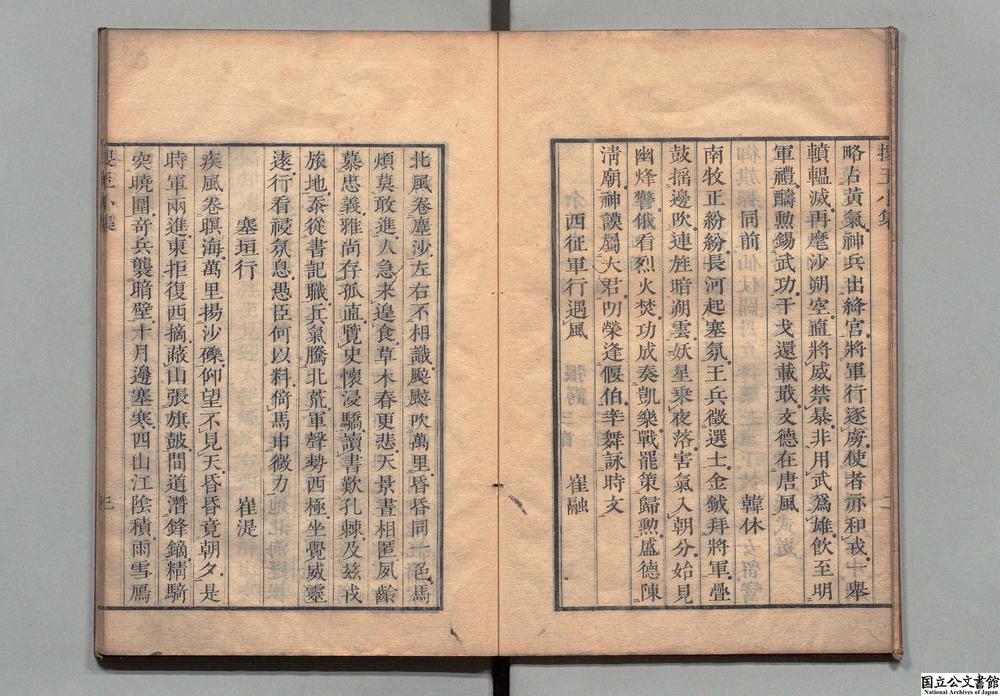 略占黃氣神兵出絳宮將軍行逐虜使者亦和戎一舉
轒轀滅再麾沙朔空直將威禁暴非用武爲雄飲至明
軍禮醻勲錫武功干戈還載戢文德在唐風
同前 韓休
南牧正紛紛長河起塞氛王兵徵選士金鉞拜將軍疊
鼓揺邊吹連旌暗朔雲妖星乘夜落害氣入朝分始見
幽烽警俄看烈火焚功成奏凱樂戰罷策歸勲盛德陳
淸廟神謨屬大君叨榮逢偃伯率舞詠時文
西征軍行遇風 崔融
北風卷塵沙左右不相識颼颼吹萬里昏昏同一色馬
煩莫敢進人急未遑食草木春更悲天景晝相匿夙齡
慕忠義雅尚存孤直覽史懷浸驕讀書歎孔棘及兹戎
旅地忝從書記職兵氣騰北荒軍聲勢西極坐覺威靈
遠行看祲氛息愚臣何以料倚馬申微力
塞垣行 崔湜
疾風卷暝海萬里揚沙礫仰望不見天昏昏竟朝夕是
時軍兩進東拒復西摘蔽山張旗鼓間道潛鋒鏑精騎
突曉圍奇兵襲暗壁十月邊塞寒四山江陰積雨雪鴈
二
三
国立公文書館
National Archives of Japan